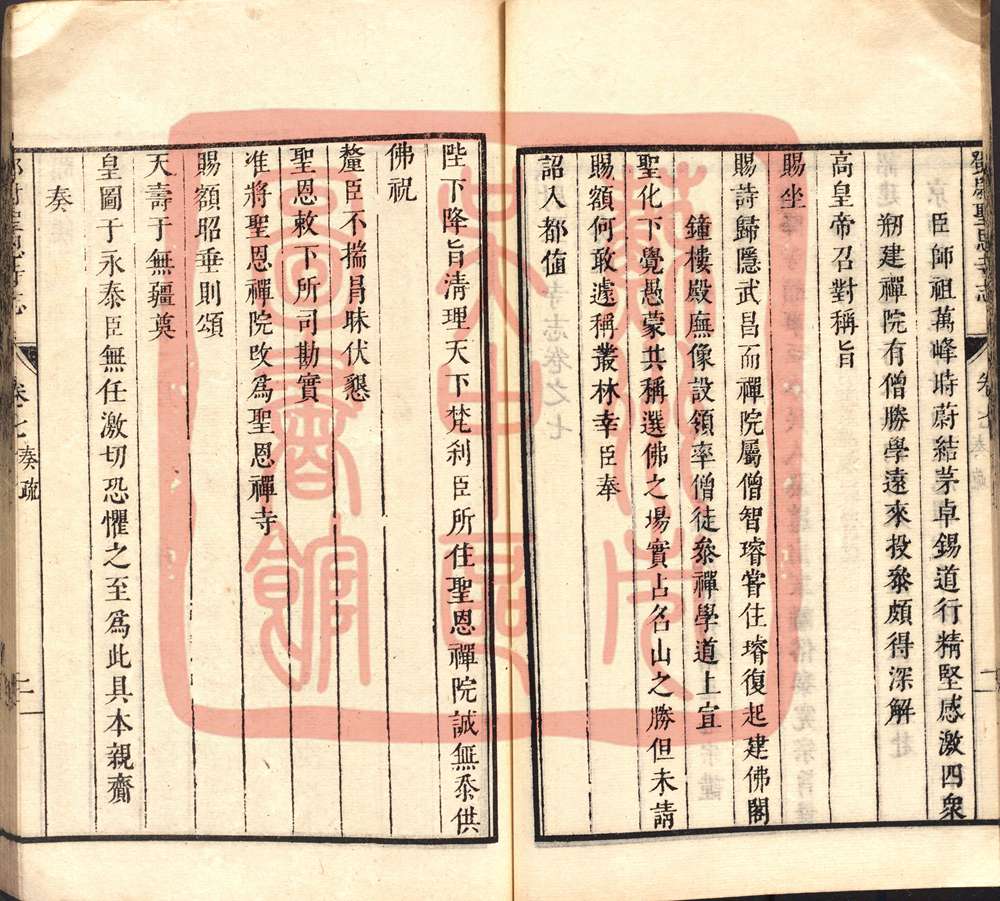 臣師祖萬峰時蔚結茅卓錫道行精堅感激四衆
剏建禪院有僧勝學遠來投叅頗得深解
高皇帝召對稱旨
賜坐
賜詩歸隱武昌而禪院屬僧智璿嘗住璿復起建佛閣
鐘樓殿廡像設領率僧徒叅禪學道上宣
聖化下覺愚蒙共稱選佛之塲實占名山之勝但未請
賜額何敢遽稱叢林幸臣奉
詔入都值
陛下降旨清理天下梵刹臣所住聖恩禪院誠無忝供
佛祝
釐臣不揣冐昧伏懇
聖恩敕下所司勘實
准將聖恩禪院改爲聖恩禪寺
賜額昭垂則頌
天壽于無疆奠
皇圖于永泰臣無任激切恐懼之至爲此具本親齎
奏
卷七奏疏
二